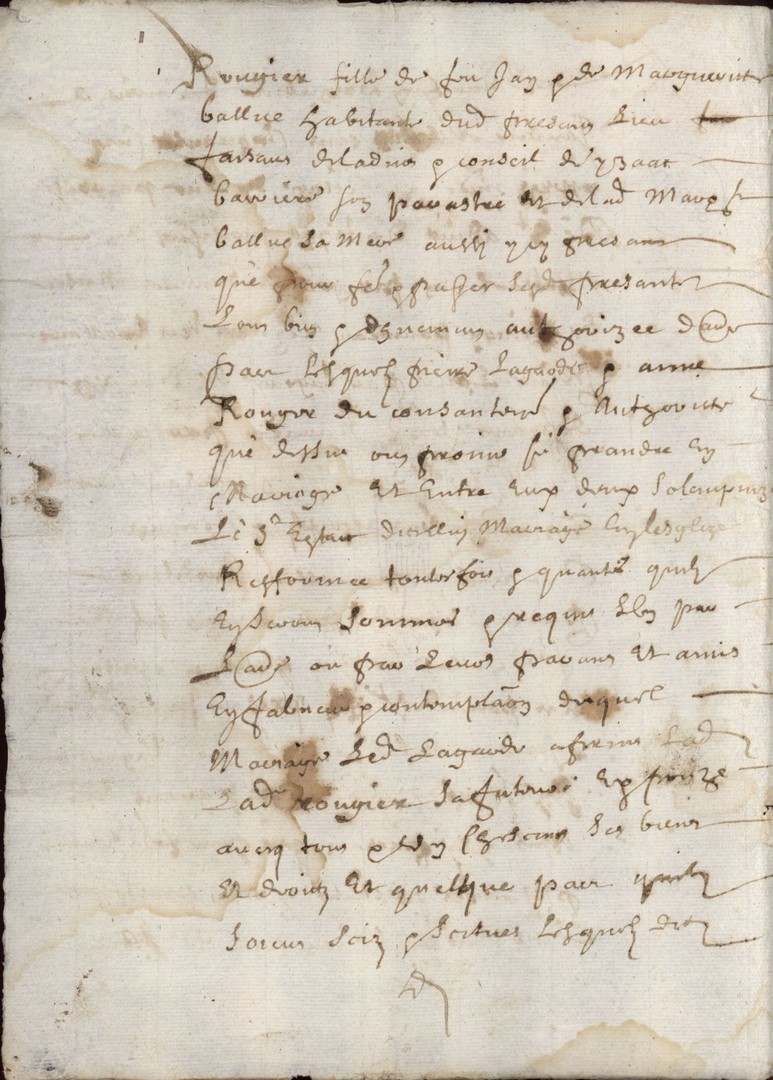 Rougier fille de feu Jan & de Marguerite
ballue habitante dud presant lieu
faisans de ladvis & conseil de yzaac
barriere son parastre et de lad Marg^te
ballue sa mere aussy yci presans
que pour
Leurs biens authorizee
par lesquelz pierre Lagarde & anne
Rougier du consantemt & Authorite
que dessus ont promis se prandre en
Mariage Et Entre Eux deux Solempnizer
Le St Estat dicelluy Mariage En lesglize
Refformee toutesfois & quantes quilz
En seront sommes & requis Lun par
L autre ou par Leurs parans Et amis
En fabveur & contemplaon duquel
Mariage Led Lagarde a prins
Lad rougier sa future Expouze
avecq tous & un chescuns ses biens
Et droictz Et quelque part quilz
Soient scis & scitues Lesquelz dictz